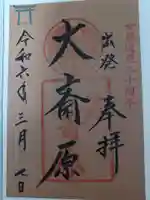 出発
奉拝
大斎原
令和六年三月七日